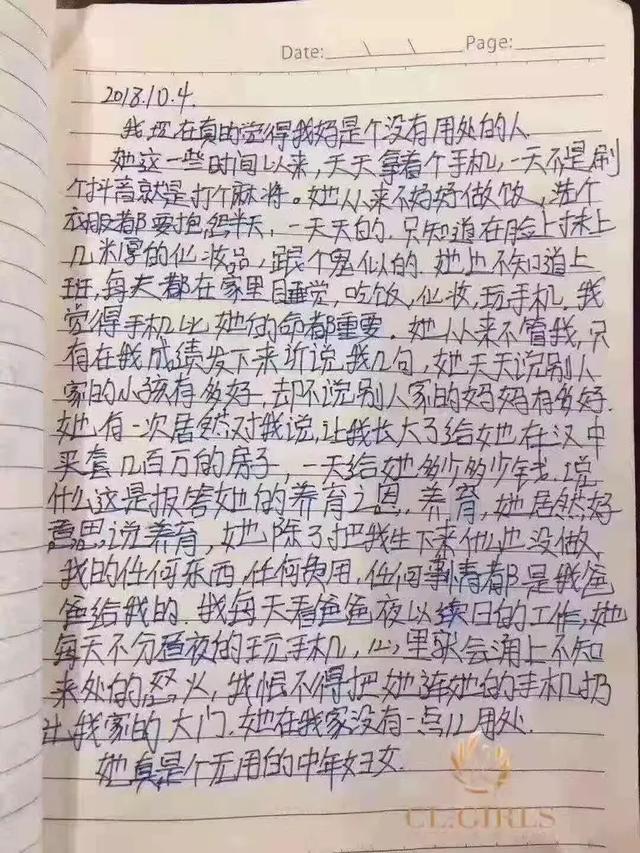 Date: \ \ Page:
2018.10.4.
我现在真的觉得我妈是个没有用处的人
她这一些时间以来,天天拿着个手机,一天不是刷
个抖音就是打个麻将。她从来不好好做饭,洗个
衣服都要抱怨半天,一天天的.只知道在脸上抹上
几米厚的化妆品,跟个鬼似的.她也不知道上
班,每天都在家里睡觉,吃饭,化妆,玩手机.我
觉得手机比她的命都重要.她从来不管我,只
有在我成绩发下来后说我几句,她天天说别人
家的小孩有多好,却不说别人家的妈妈有多好.
她有一次居然对我说,让我长大了给她在汉中
买套几百万的房子,一天给她多少多少钱.说
什么这是报答她的养育之恩.养育,她居然好
意思说养育,她除了把我生下来他也没做,
我的任何东西,任何费用,任何事情都是我爸
爸给我的.我每天看爸爸夜以续日的工作,她
每天不分昼夜的玩手机,心里就会涌上不知
来处的怒火,我恨不得把她连她的手机扔
出我家的大门.她在我家没有一点儿用处.
她真是个无用的中年妇女.
CL:GIRLS